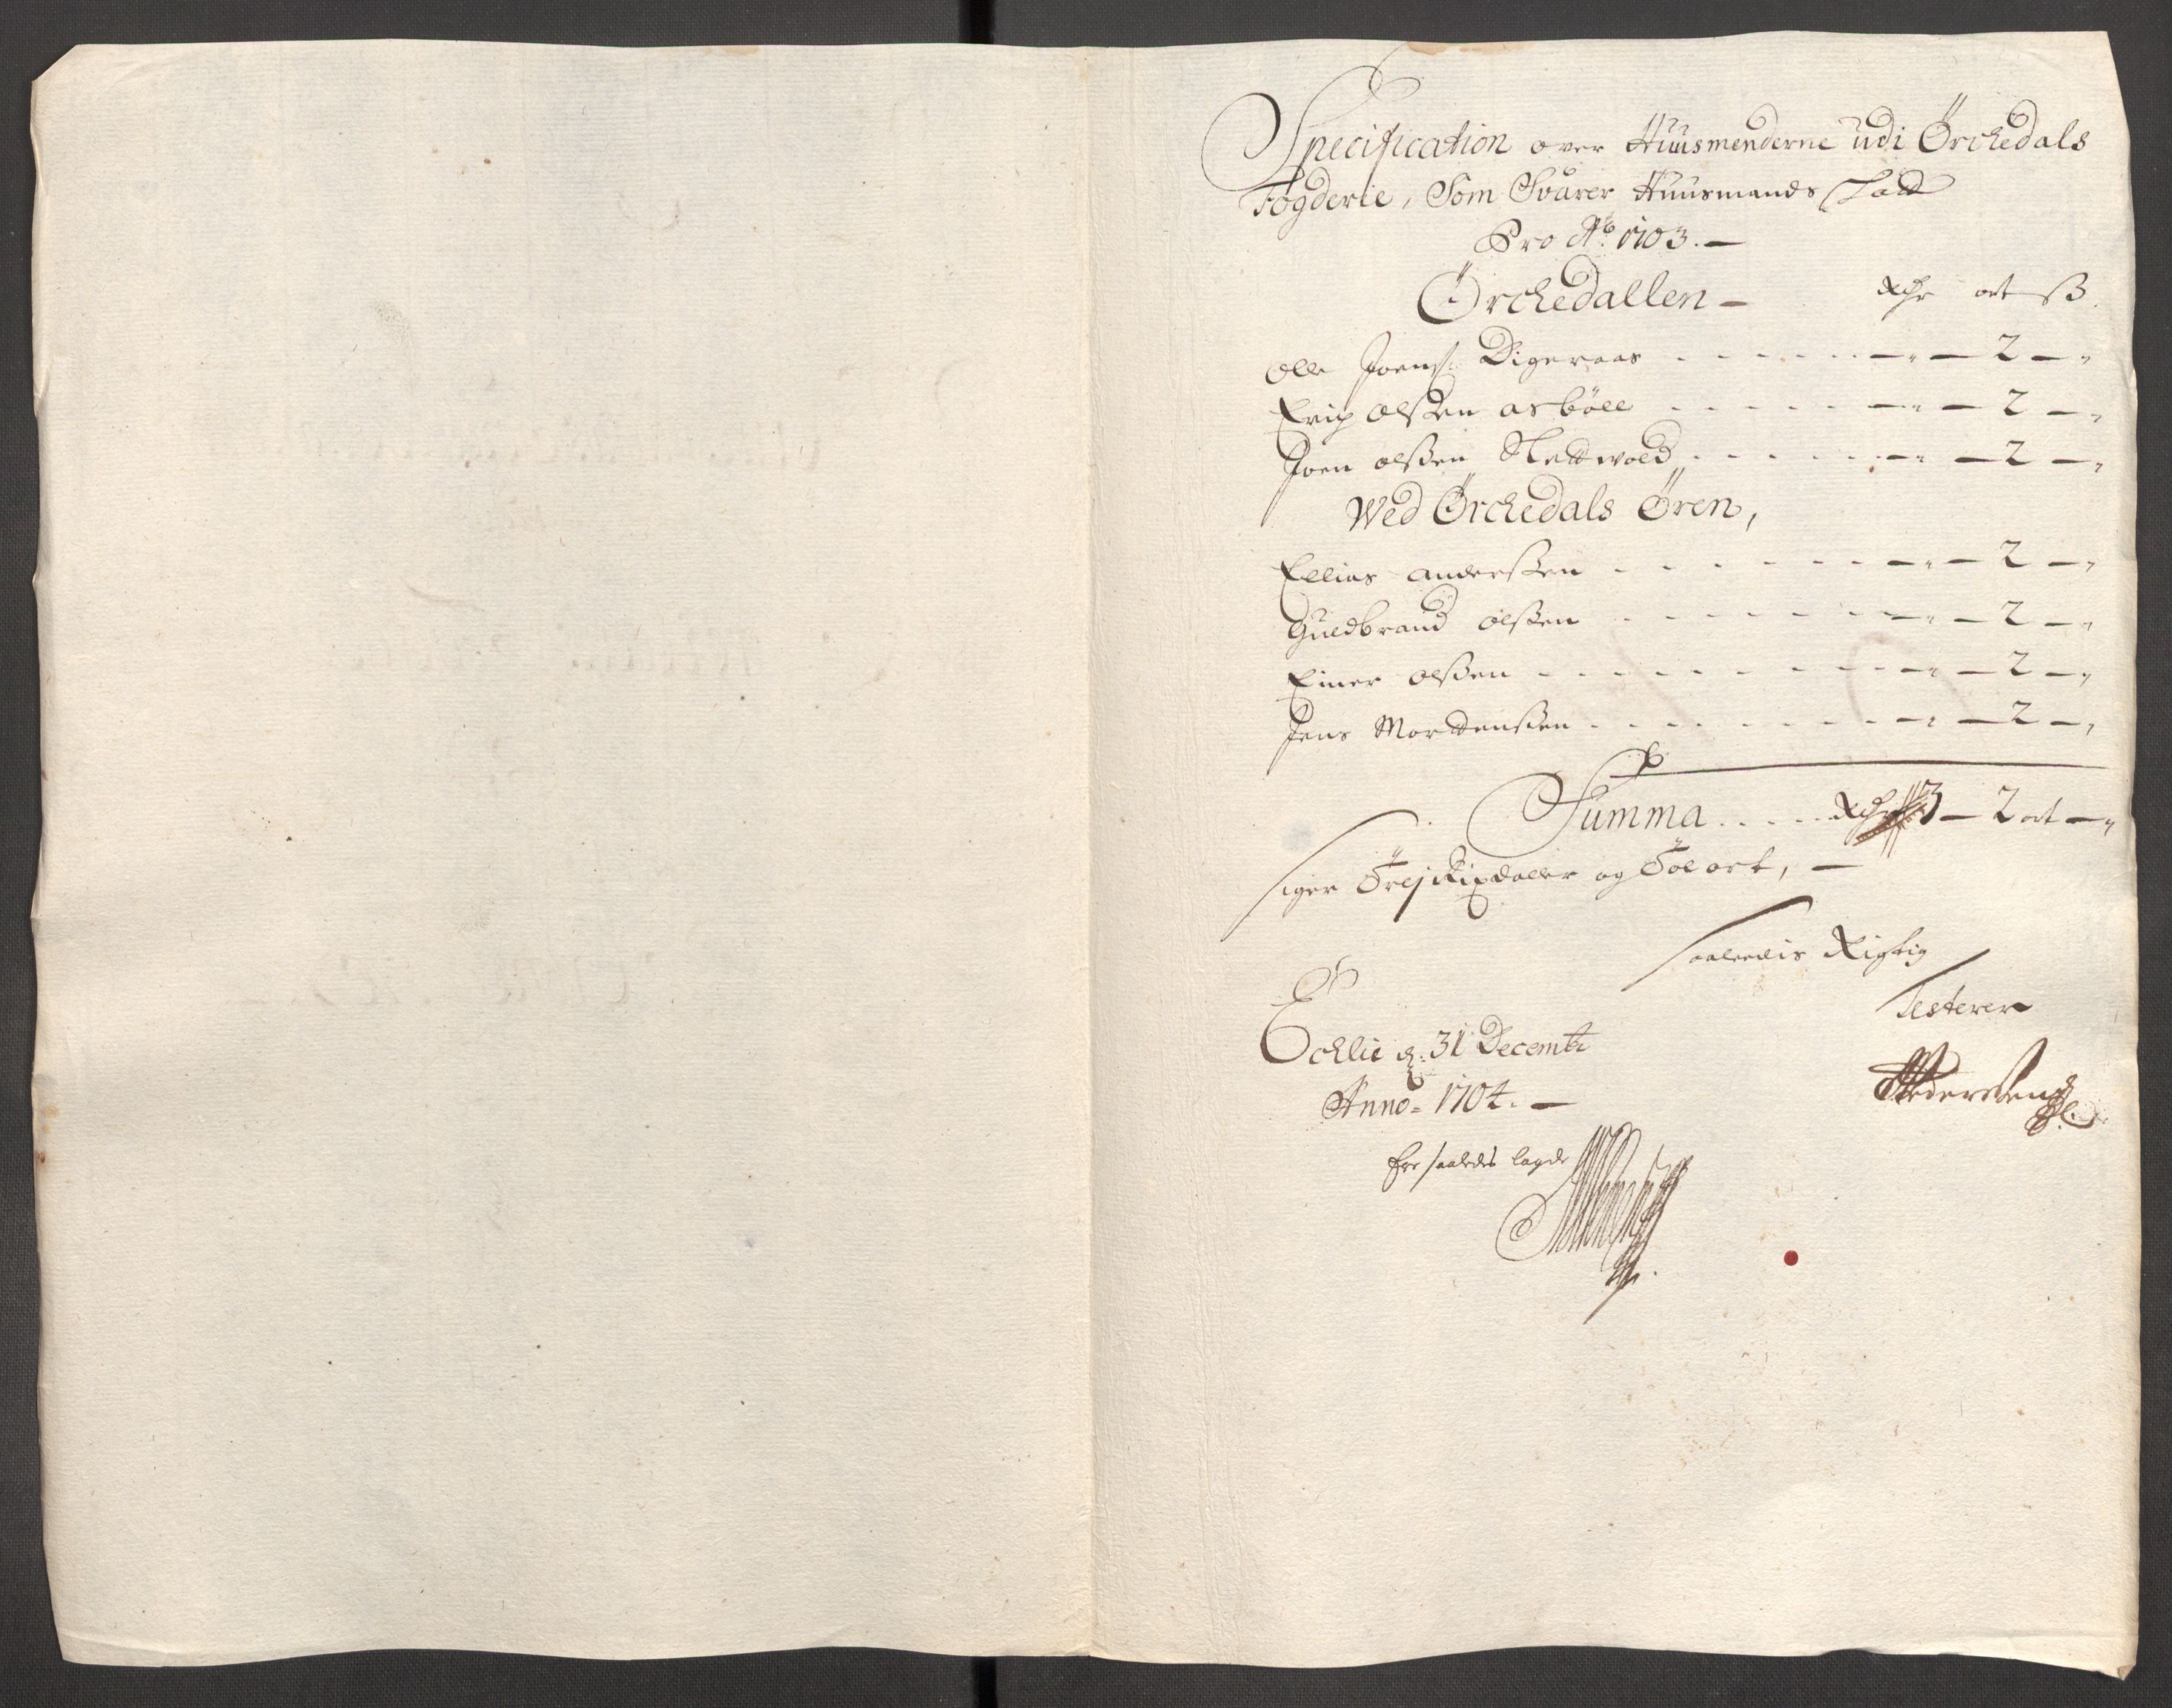 Specification over Huusmenderne udi Örchedals
Fogderie, Som Svarer Huusmands Skatt
Pro Ao: 1703.—
Örchedallen — Rdr ort ß
Olle Joens: Digeraas . . . . . — " — 2 — "
Erich Olßen Asbøll . . . . . — " — 2 — "
Joen Olßen . . . . . — " — 2 — "
Wed Örchedals Ören,
Ellias Anderßen . . . . . — " — 2 — "
Guldbrand Olßen . . . . . — " — 2 — "
Einer Olßen . . . . . — " — 2 — "
Jens Mortenßen . . . . . — " — 2 — "
Summa . . . . . Rdr 3 — 2 ort — "
siger Trej Rixdaler og Toe ort, —
saaledis Rigtig
Testerer
Ecklie d: 31 Decembr
Anno = 1704. —
Er saaledes lagde